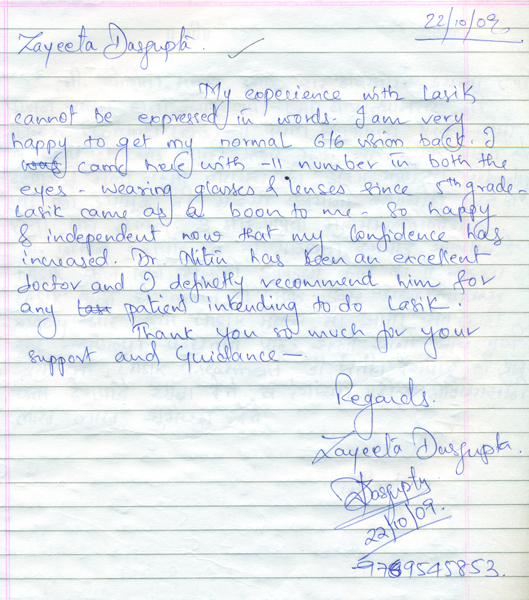 22/10/09
Zayeeta Dasgupta.
My experience with Lasik
cannot be expressed in words. I am very
happy to get my normal 6/6 vision back. I
was came here with -11 number in both the
eyes - wearing glasses & lenses since 5th grade-
Lasik came as a boon to me - So happy
& independent now that my confidence has
increased. Dr. Nitin has been an excellent
doctor and I definetly recommend him for
any patient intending to do Lasik.
Thank you so much for your
support and Guidance—
Regards.
Zayeeta Dasgupta.
Dasgupta
22/10/09.
9769545853.